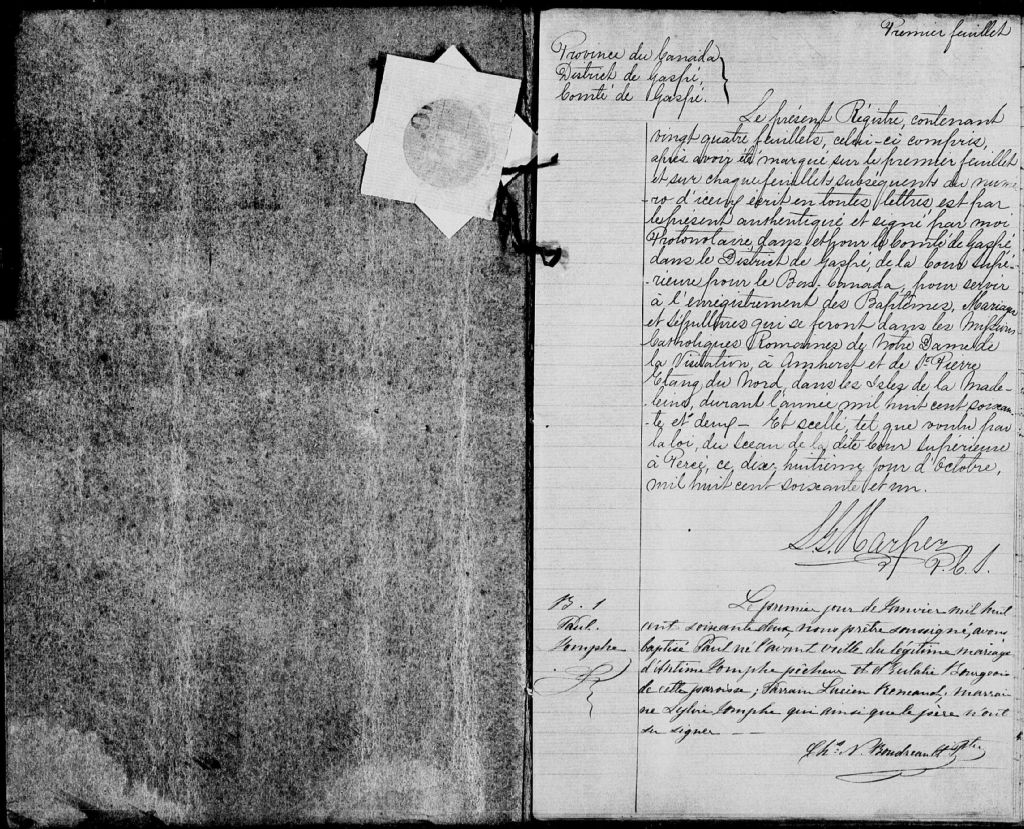 Premier feuillet
Province du Canada
District de Gaspé,
Comté de Gaspé.
Le présent Régistre, contenant
vingt quatre feuillets, celui-ci compris,
après avoir été marqué sur le premier feuillet
et sur chaque feuillets subséquents du numé-
-ro d'iceux écrit en toutes lettres est par
le présent authentiqué et signé par moi
Protonotaire, dans et pour le Comté de Gaspé,
dans le District de Gaspé, de la Cour Supé-
-rieure pour le Bas-Canada, pour servir
à l'enregistrement des Baptêmes, Mariages
et Sépultures qui se feront dans les Missions
Catholiques Romaines de Notre Dame de
la Visitation, à Amherst et de St. Pierre
Etang du Nord, dans les Isles de la Made-
-leine, durant l'année mil huit cent soixan-
-te et deux - Et scellé, tel que voulu par
la loi, du Sceau de la dite Cour Supérieure
à Percé, ce dix huitième jour d'Octobre,
mil huit cent soixante et un.
Harper
P.C.S.
B. 1
Paul
Vomphe
Le premier jour de Janvier mil huit
cent soixante deux, nous prêtre soussigné, avons
baptisé Paul né l'avant veille du légitime mariage
d'Antime Vomphe pêcheur et d'Eulalie Bourgeois
de cette paroisse; Parrain Lucien marrai-
ne Sylvie Vomphe qui ainsi que le père n'ont
su signer - -
Chs. N. Boudreault Ptre